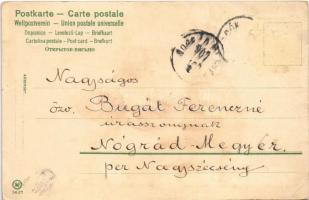 Postkarte — Carte postale
Weltpostverein — Union postale universelle
Dopisnice — Levelező-Lap — Briefkaart
Cartolina postale — Post-card — Brefkort
Открытое письмо
Nagyságos
özv. Bugát Ferenczné
úrasszonynak
Nógrád-Megyer.
per Nagyszécsény